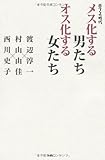 メス化する男たち
オス化する女たち
渡辺淳一
村山由佳
西川史子